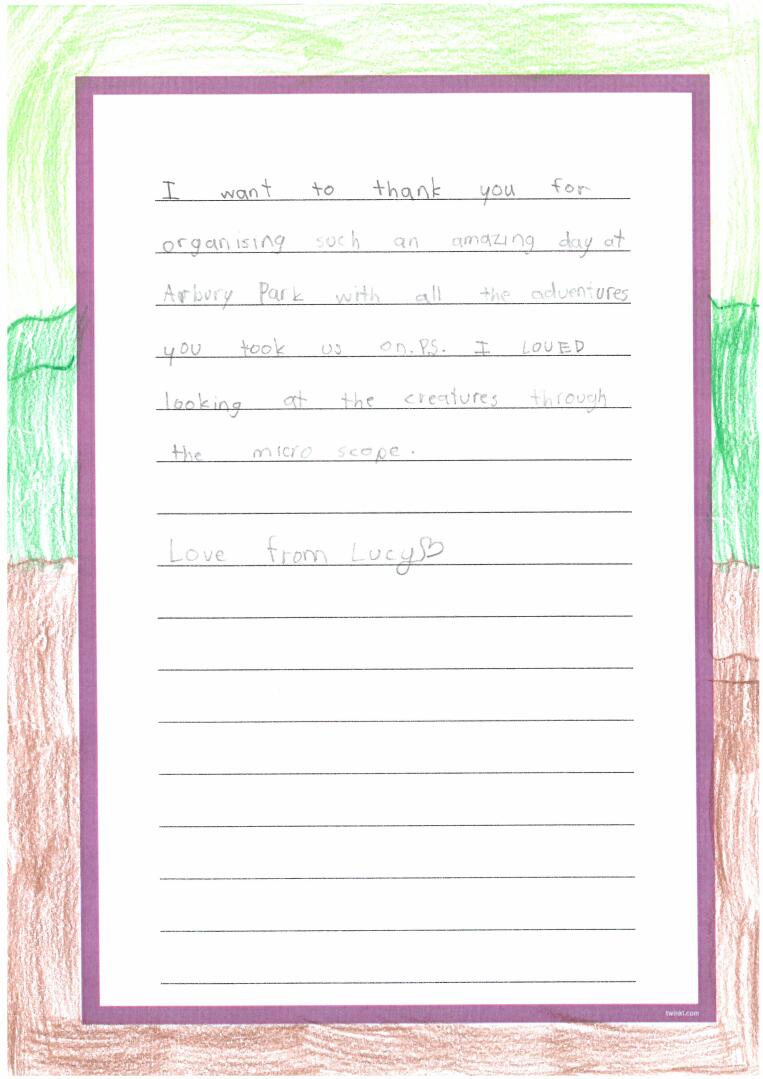 I want to thank you for
organising such an amazing day at
Arbury Park with all the adventures
you took us on. P.S. I LOVED
looking at the creatures through
the micro scope.
Love from Lucy♡
twinkl.com